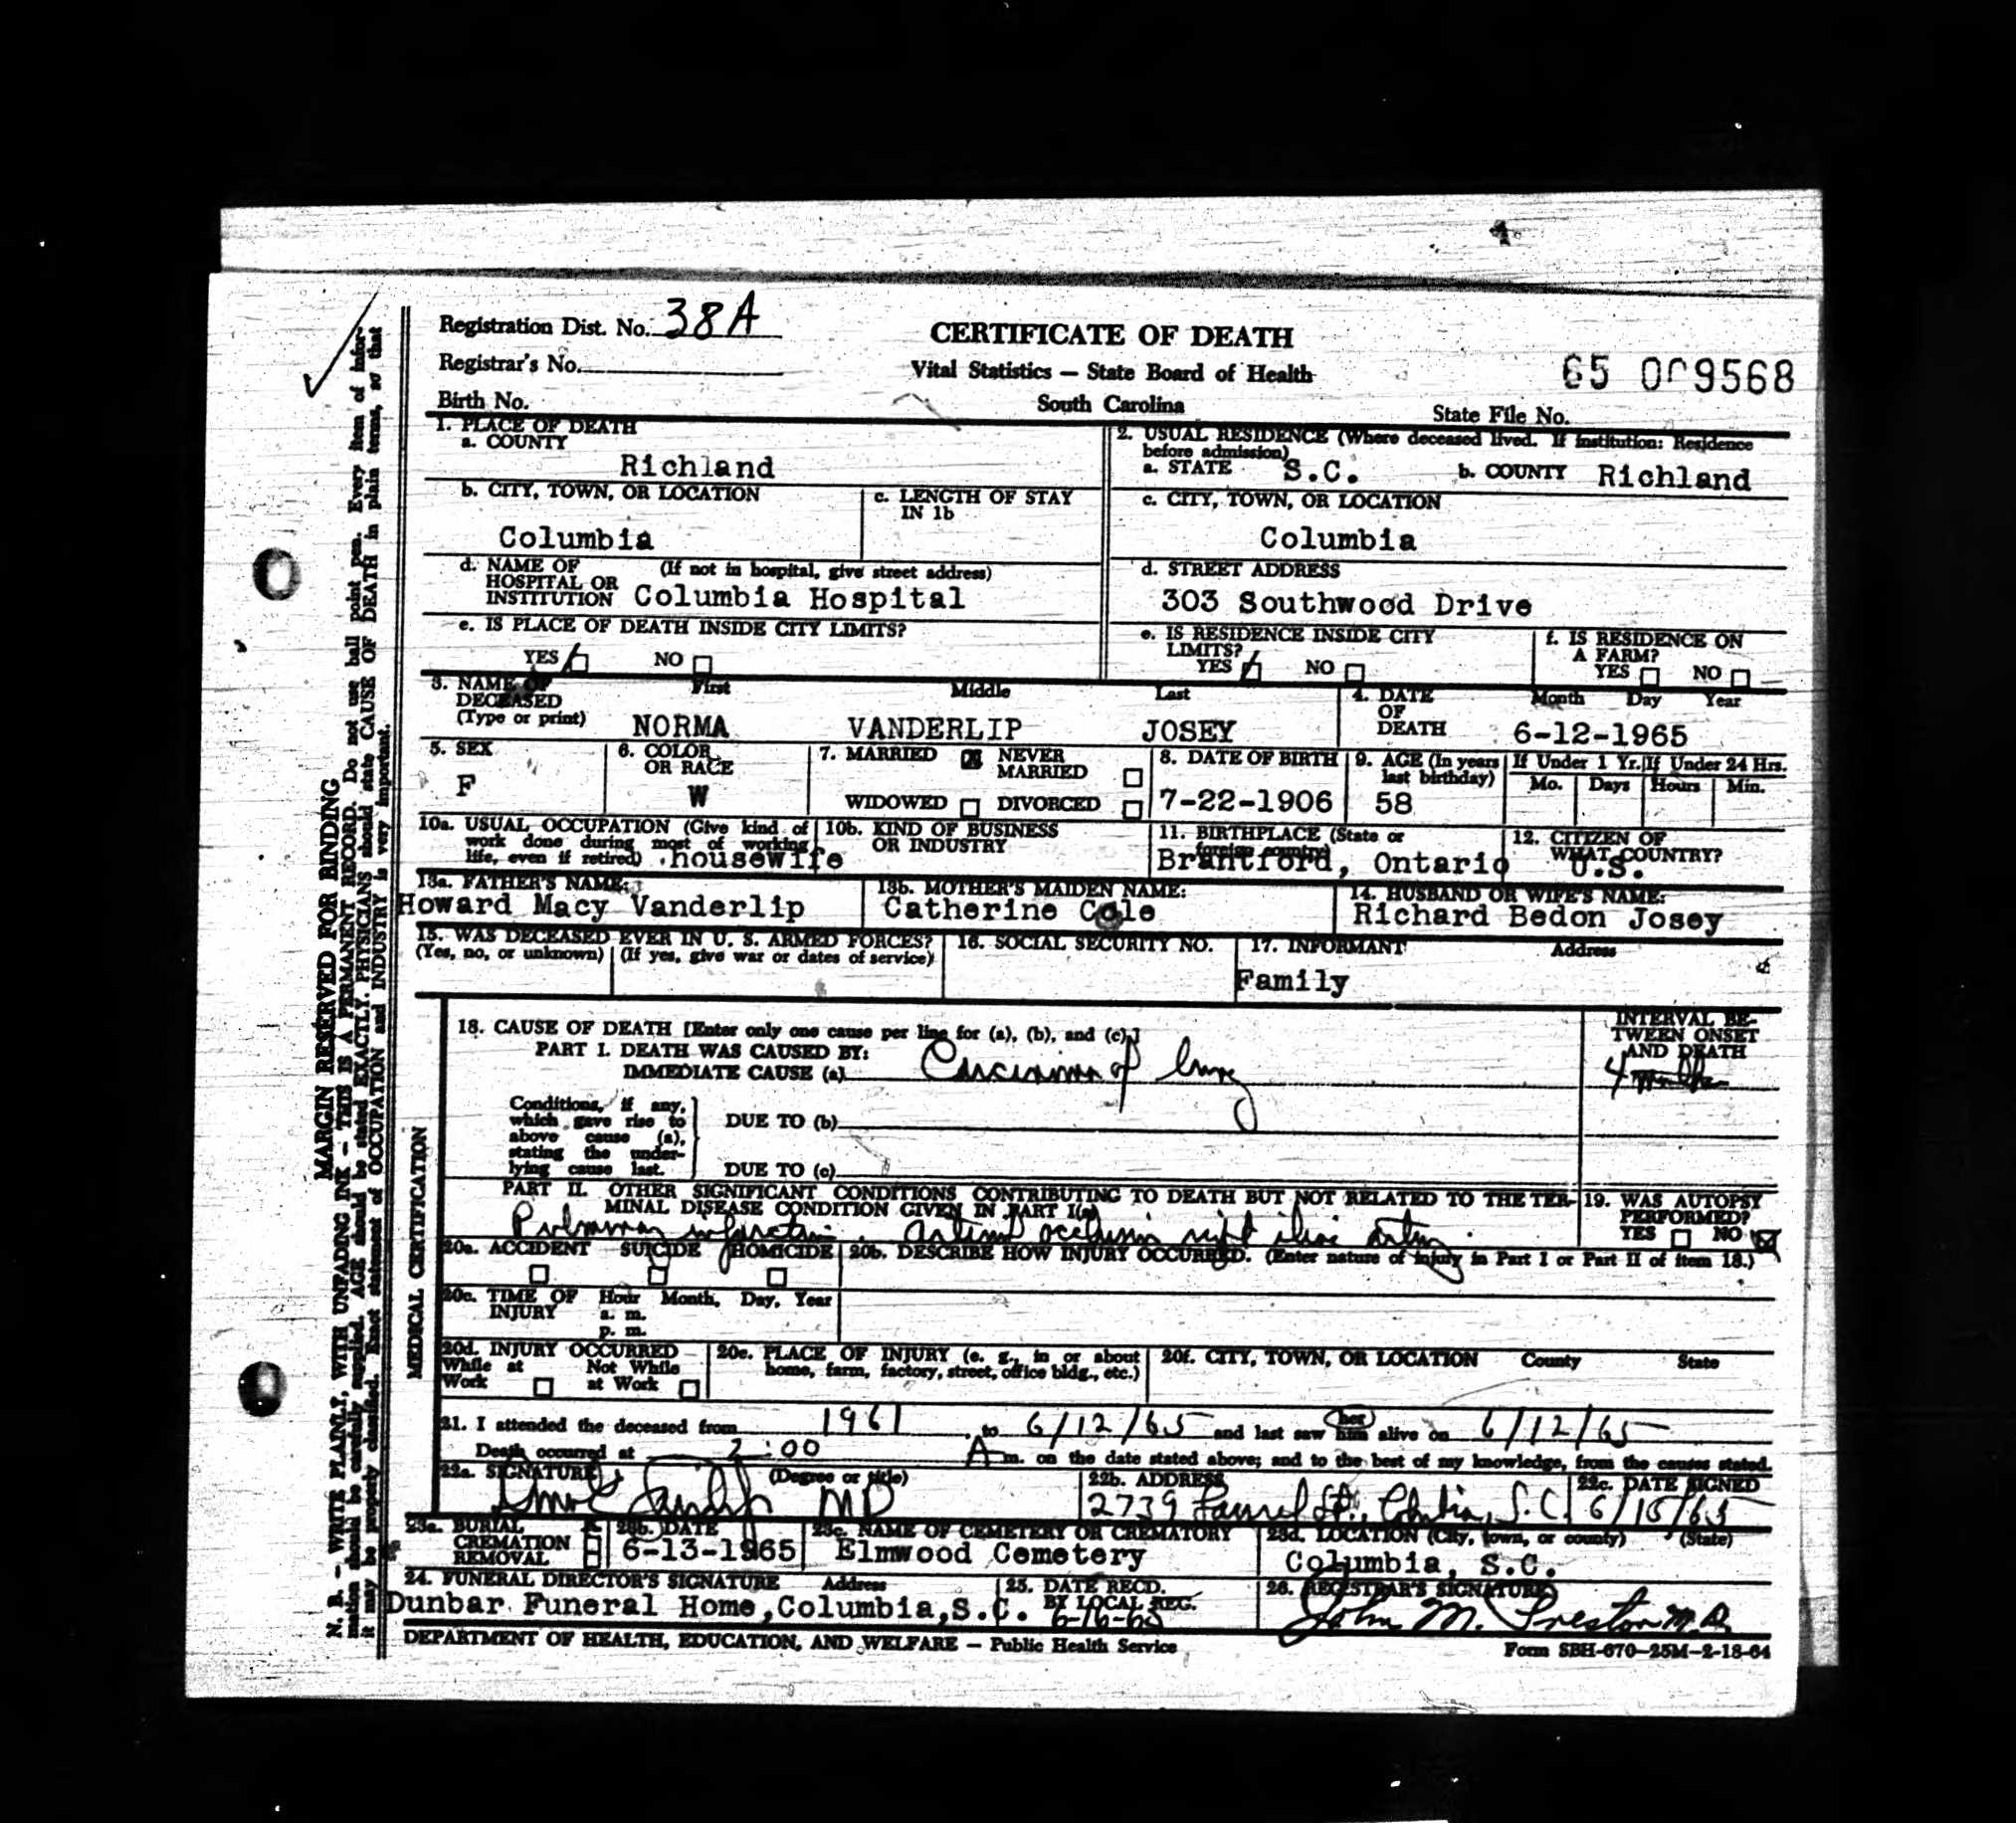 Registration Dist. No. 38A
CERTIFICATE OF DEATH
Registrar's No.
Vital Statistics — State Board of Health
65 009568
Birth No.
South Carolina
State File No.
1. PLACE OF DEATH
a. COUNTY
Richland
2. USUAL RESIDENCE (Where deceased lived. If institution: Residence before admission)
a. STATE S.C. b. COUNTY Richland
b. CITY, TOWN, OR LOCATION
Columbia
c. LENGTH OF STAY IN 1b
c. CITY, TOWN, OR LOCATION
Columbia
d. NAME OF HOSPITAL OR INSTITUTION (If not in hospital, give street address)
Columbia Hospital
d. STREET ADDRESS
303 Southwood Drive
e. IS PLACE OF DEATH INSIDE CITY LIMITS?
YES NO
e. IS RESIDENCE INSIDE CITY LIMITS?
YES NO
f. IS RESIDENCE ON A FARM?
YES NO
3. NAME OF DECEASED (Type or print)
First Middle Last
NORMA VANDERLIP JOSEY
4. DATE OF DEATH
Month Day Year
6-12-1965
5. SEX
F
6. COLOR OR RACE
W
7. MARRIED NEVER MARRIED
WIDOWED DIVORCED
8. DATE OF BIRTH
7-22-1906
9. AGE (In years last birthday)
58
If Under 1 Yr. If Under 24 Hrs.
Mo. Days Hours Min.
10a. USUAL OCCUPATION (Give kind of work done during most of working life, even if retired)
housewife
10b. KIND OF BUSINESS OR INDUSTRY
11. BIRTHPLACE (State or foreign country)
Brantford, Ontario
12. CITIZEN OF WHAT COUNTRY?
U.S.
13a. FATHER'S NAME:
Howard Macy Vanderlip
13b. MOTHER'S MAIDEN NAME:
Catherine Cole
14. HUSBAND OR WIFE'S NAME:
Richard Bedon Josey
15. WAS DECEASED EVER IN U. S. ARMED FORCES?
(Yes, no, or unknown) (If yes, give war or dates of service)
16. SOCIAL SECURITY NO.
17. INFORMANT Address
Family
18. CAUSE OF DEATH [Enter only one cause per line for (a), (b), and (c).]
PART I. DEATH WAS CAUSED BY:
IMMEDIATE CAUSE (a) Carcinoma of lung
INTERVAL BETWEEN ONSET AND DEATH
4 months
Conditions, if any, which gave rise to above cause (a), stating the underlying cause last.
DUE TO (b)
DUE TO (c)
PART II. OTHER SIGNIFICANT CONDITIONS CONTRIBUTING TO DEATH BUT NOT RELATED TO THE TERMINAL DISEASE CONDITION GIVEN IN PART I(a)
Pulmonary infarction. Arterial occlusion right iliac artery.
19. WAS AUTOPSY PERFORMED?
YES NO
20a. ACCIDENT SUICIDE HOMICIDE
20b. DESCRIBE HOW INJURY OCCURRED. (Enter nature of injury in Part I or Part II of item 18.)
20c. TIME OF INJURY Hour Month, Day, Year
a. m.
p. m.
20d. INJURY OCCURRED
While at Work Not While at Work
20e. PLACE OF INJURY (e. g., in or about home, farm, factory, street, office bldg., etc.)
20f. CITY, TOWN, OR LOCATION County State
21. I attended the deceased from 1961 to 6/12/65 and last saw her him alive on 6/12/65
Death occurred at 2:00 A m. on the date stated above; and to the best of my knowledge, from the causes stated.
22a. SIGNATURE (Degree or title)
MD
22b. ADDRESS
2739 Laurel St., Columbia, S.C.
22c. DATE SIGNED
6/15/65
23a. BURIAL CREMATION REMOVAL
23b. DATE
6-13-1965
23c. NAME OF CEMETERY OR CREMATORY
Elmwood Cemetery
23d. LOCATION (City, town, or county) (State)
Columbia, S.C.
24. FUNERAL DIRECTOR'S SIGNATURE Address
Dunbar Funeral Home, Columbia, S.C.
25. DATE RECD. BY LOCAL REG.
6-16-65
26. REGISTRAR'S SIGNATURE
John M. Preston M.D.
DEPARTMENT OF HEALTH, EDUCATION, AND WELFARE — Public Health Service
Form SBH-670—25M—2-18-64
MEDICAL CERTIFICATION
MARGIN RESERVED FOR BINDING
N. B. — WRITE PLAINLY, WITH UNFADING INK — THIS IS A PERMANENT RECORD. Do not use ball point pen. Every item of information should be carefully supplied. AGE should be stated EXACTLY. PHYSICIANS should state CAUSE OF DEATH in plain terms, so that it may be properly classified. Exact statement of OCCUPATION and INDUSTRY is very important.